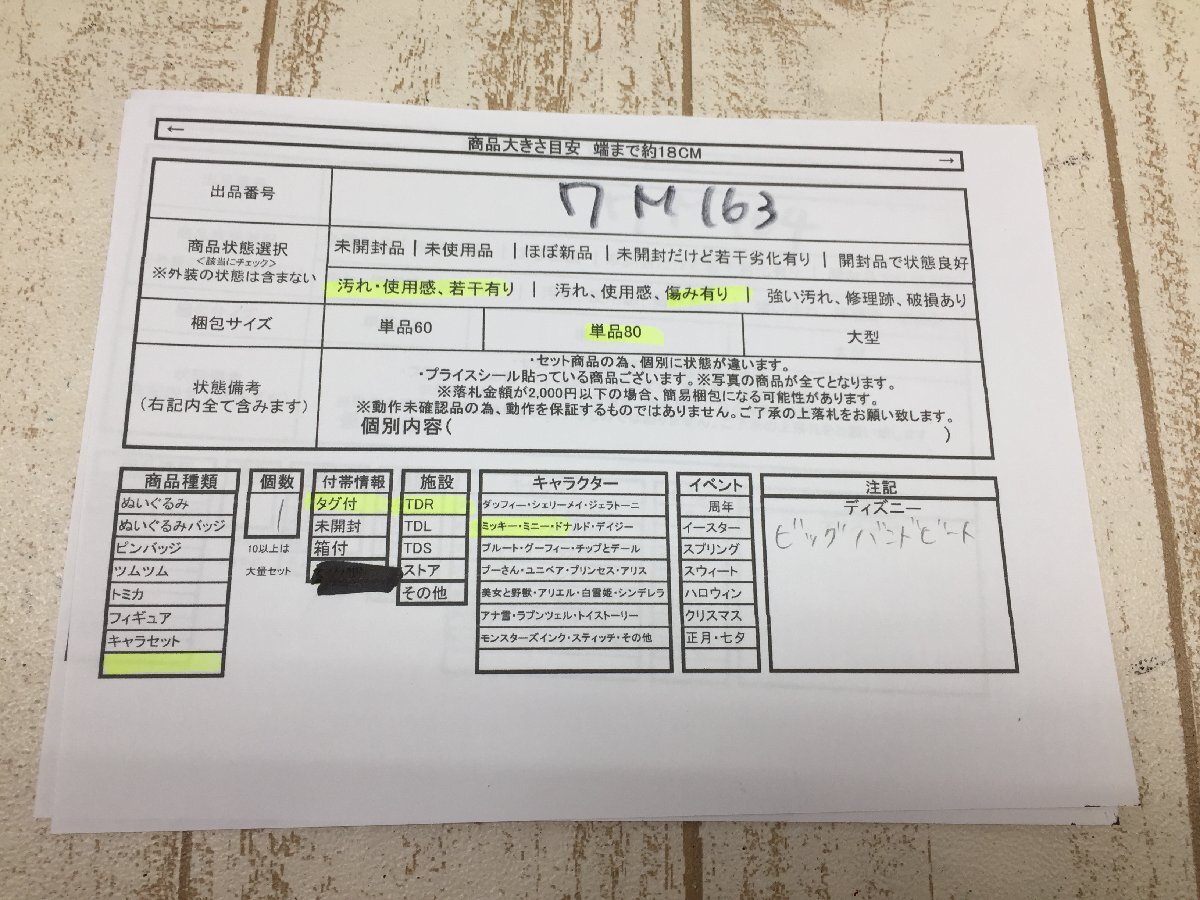 ← 商品大きさ目安 端まで約18CM →
出品番号 ワM163
商品状態選択 <該当にチェック> ※外装の状態は含まない
未開封品 | 未使用品 | ほぼ新品 | 未開封だけど若干劣化有り | 開封品で状態良好
汚れ・使用感、若干有り | 汚れ、使用感、傷み有り | 強い汚れ、修理跡、破損あり
梱包サイズ 単品60 単品80 大型
状態備考
(右記内全て含みます)
・セット商品の為、個別に状態が違います。
・プライスシール貼っている商品ございます。※写真の商品が全てとなります。
※落札金額が2,000円以下の場合、簡易梱包になる可能性があります。
※動作未確認品の為、動作を保証するものではありません。ご了承の上落札をお願い致します。
個別内容( )
商品種類
ぬいぐるみ
ぬいぐるみバッジ
ピンバッジ
ツムツム
トミカ
フィギュア
キャラセット
個数
1
10以上は
大量セット
付帯情報
タグ付
未開封
箱付
施設
TDR
TDL
TDS
ストア
その他
キャラクター
ダッフィー・シェリーメイ・ジェラトーニ
ミッキー・ミニー・ドナルド・デイジー
プルート・グーフィー・チップとデール
プーさん・ユニベア・プリンセス・アリス
美女と野獣・アリエル・白雪姫・シンデレラ
アナ雪・ラプンツェル・トイストーリー
モンスターズインク・スティッチ・その他
イベント
周年
イースター
スプリング
スウィート
ハロウィン
クリスマス
正月・七夕
注記
ディズニー
ビッグバンドビート